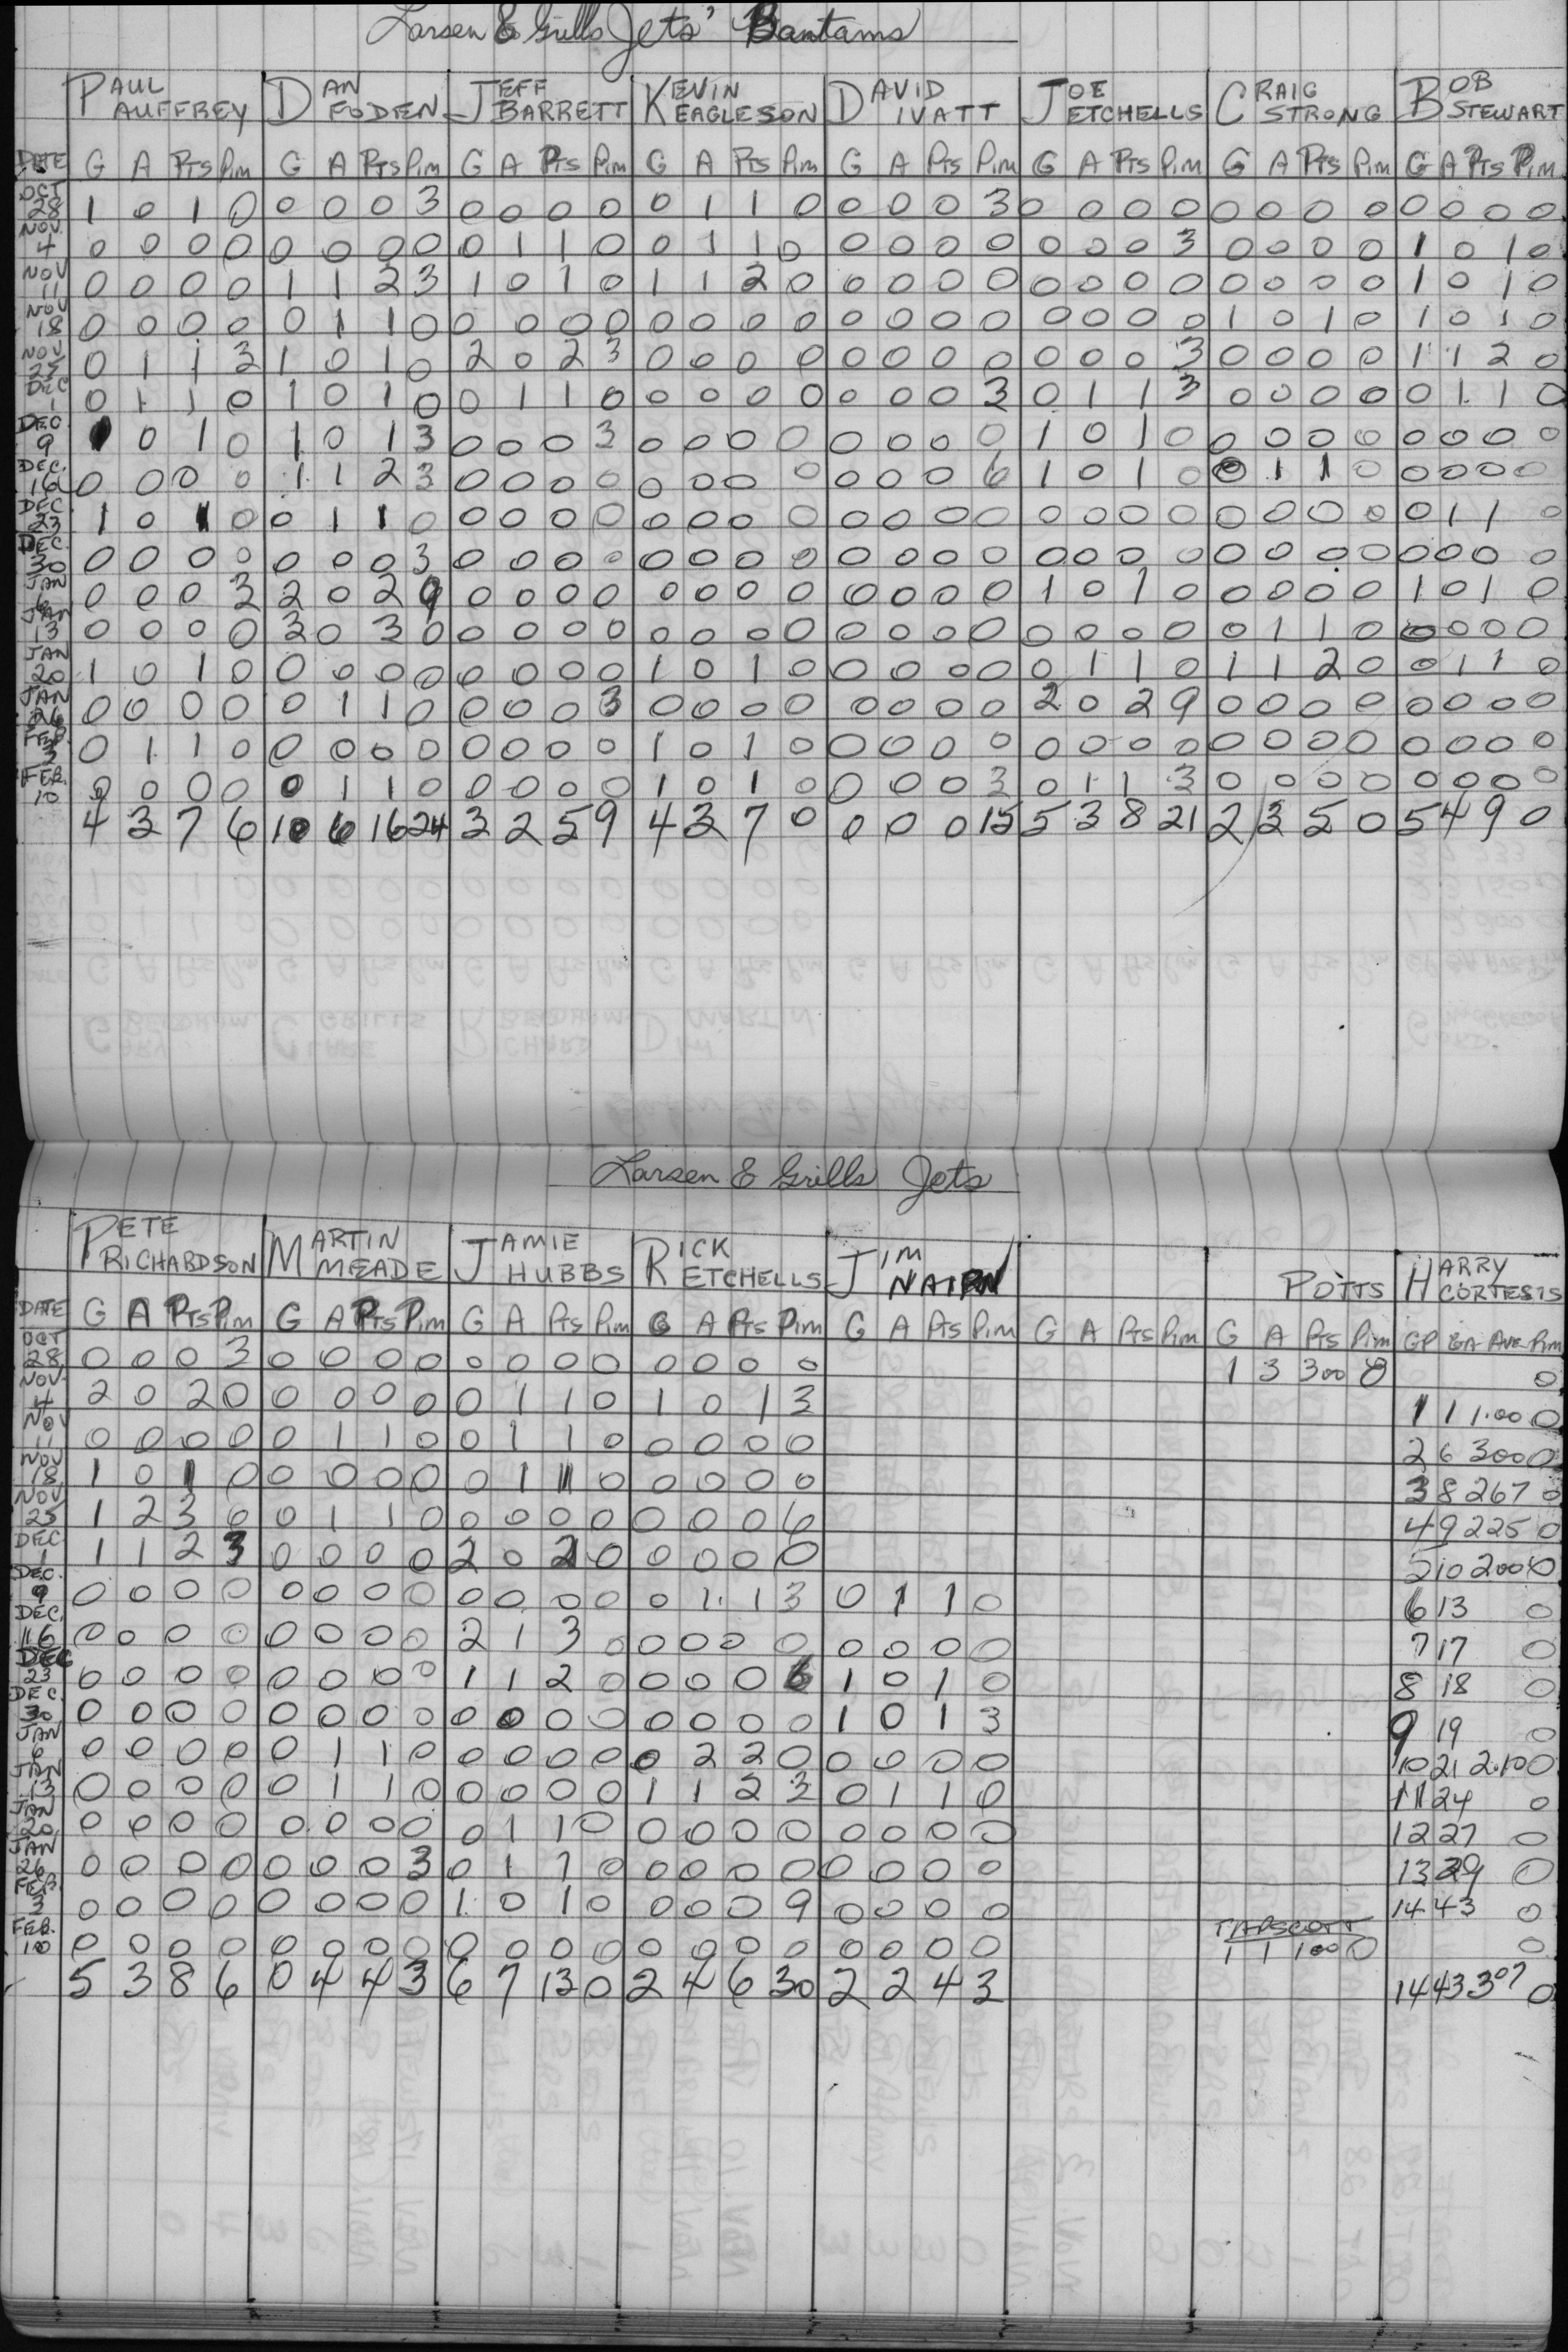 Larsen & Grills Jets' Bantams
PAUL AUFFREY DAN FODEN JEFF BARRETT KEVIN EAGLESON DAVID IVATT JOE ETCHELLS CRAIG STRONG BOB STEWART
DATE G A Pts Pim G A Pts Pim G A Pts Pim G A Pts Pim G A Pts Pim G A Pts Pim G A Pts Pim G A Pts Pim
OCT 28 1 0 1 0 0 0 0 3 0 0 0 0 0 1 1 0 0 0 0 3 0 0 0 0 0 0 0 0 0 0 0 0
NOV. 4 0 0 0 0 0 0 0 0 0 1 1 0 0 1 1 0 0 0 0 0 0 0 0 3 0 0 0 0 1 0 1 0
NOV 11 0 0 0 0 1 1 2 3 1 0 1 0 1 1 2 0 0 0 0 0 0 0 0 0 0 0 0 0 1 0 1 0
NOV 18 0 0 0 0 0 1 1 0 0 0 0 0 0 0 0 0 0 0 0 0 0 0 0 0 1 0 1 0 1 0 1 0
NOV 25 0 1 1 3 1 0 1 0 2 0 2 3 0 0 0 0 0 0 0 0 0 0 0 3 0 0 0 0 1 1 2 0
DEC 1 0 1 1 0 1 0 1 0 0 1 1 0 0 0 0 0 0 0 0 3 0 1 1 3 0 0 0 0 0 1 1 0
DEC 9 1 0 1 0 1 0 1 3 0 0 0 3 0 0 0 0 0 0 0 0 1 0 1 0 0 0 0 0 0 0 0 0
DEC. 16 0 0 0 0 1 1 2 3 0 0 0 0 0 0 0 0 0 0 0 6 1 0 1 0 0 1 1 0 0 0 0 0
DEC 23 1 0 1 0 0 1 1 0 0 0 0 0 0 0 0 0 0 0 0 0 0 0 0 0 0 0 0 0 0 1 1 0
DEC. 30 0 0 0 0 0 0 0 3 0 0 0 0 0 0 0 0 0 0 0 0 0 0 0 0 0 0 0 0 0 0 0 0
JAN 6 0 0 0 3 2 0 2 9 0 0 0 0 0 0 0 0 0 0 0 0 1 0 1 0 0 0 0 0 1 0 1 0
JAN 13 0 0 0 0 3 0 3 0 0 0 0 0 0 0 0 0 0 0 0 0 0 0 0 0 0 1 1 0 0 0 0 0
JAN 20 1 0 1 0 0 0 0 0 0 0 0 0 1 0 1 0 0 0 0 0 0 1 1 0 1 1 2 0 0 1 1 0
JAN 26 0 0 0 0 0 1 1 0 0 0 0 3 0 0 0 0 0 0 0 0 2 0 2 9 0 0 0 0 0 0 0 0
FEB 3 0 1 1 0 0 0 0 0 0 0 0 0 1 0 1 0 0 0 0 0 0 0 0 0 0 0 0 0 0 0 0 0
FEB. 10 0 0 0 0 0 1 1 0 0 0 0 0 1 0 1 0 0 0 0 3 0 1 1 3 0 0 0 0 0 0 0 0
4 3 7 6 10 6 16 24 3 2 5 9 4 3 7 0 0 0 0 15 5 3 8 21 2 3 5 0 5 4 9 0
Larsen & Grills Jets
PETE RICHARDSON MARTIN MEADE JAMIE HUBBS RICK ETCHELLS JIM NAIRN POTTS HARRY CORTESIS
DATE G A Pts Pim G A Pts Pim G A Pts Pim G A Pts Pim G A Pts Pim G A Pts Pim G A Pts Pim GP GA AVE Pim
OCT 28 0 0 0 3 0 0 0 0 0 0 0 0 0 0 0 0 1 3 300 0 0
NOV. 4 2 0 2 0 0 0 0 0 0 1 1 0 1 0 1 3 1 1 1.00 0
NOV 11 0 0 0 0 0 1 1 0 0 1 1 0 0 0 0 0 2 6 300 0
NOV 18 1 0 1 0 0 0 0 0 0 1 1 0 0 0 0 0 3 8 267 0
NOV 25 1 2 3 0 0 1 1 0 0 0 0 0 0 0 0 6 4 9 225 0
DEC 1 1 1 2 3 0 0 0 0 2 0 2 0 0 0 0 0 5 10 200 0
DEC. 9 0 0 0 0 0 0 0 0 0 0 0 0 0 1 1 3 0 1 1 0 6 13 0
DEC. 16 0 0 0 0 0 0 0 0 2 1 3 0 0 0 0 0 0 0 0 0 7 17 0
DEC 23 0 0 0 0 0 0 0 0 1 1 2 0 0 0 0 6 1 0 1 0 8 18 0
DEC. 30 0 0 0 0 0 0 0 0 0 0 0 0 0 0 0 0 1 0 1 3 9 19 0
JAN 6 0 0 0 0 0 1 1 0 0 0 0 0 0 2 2 0 0 0 0 0 10 21 2.10 0
JAN 13 0 0 0 0 0 1 1 0 0 0 0 0 1 1 2 3 0 1 1 0 11 24 0
JAN 20 0 0 0 0 0 0 0 0 0 1 1 0 0 0 0 0 0 0 0 0 12 27 0
JAN 26 0 0 0 0 0 0 0 3 0 1 1 0 0 0 0 0 0 0 0 0 13 29 0
FEB. 3 0 0 0 0 0 0 0 0 1 0 1 0 0 0 0 9 0 0 0 0 14 43 0
TAPSCOTT
FEB. 10 0 0 0 0 0 0 0 0 0 0 0 0 0 0 0 0 0 0 0 0 1 1 100 0 0
5 3 8 6 0 4 4 3 6 7 13 0 2 4 6 30 2 2 4 3 14 43 307 0